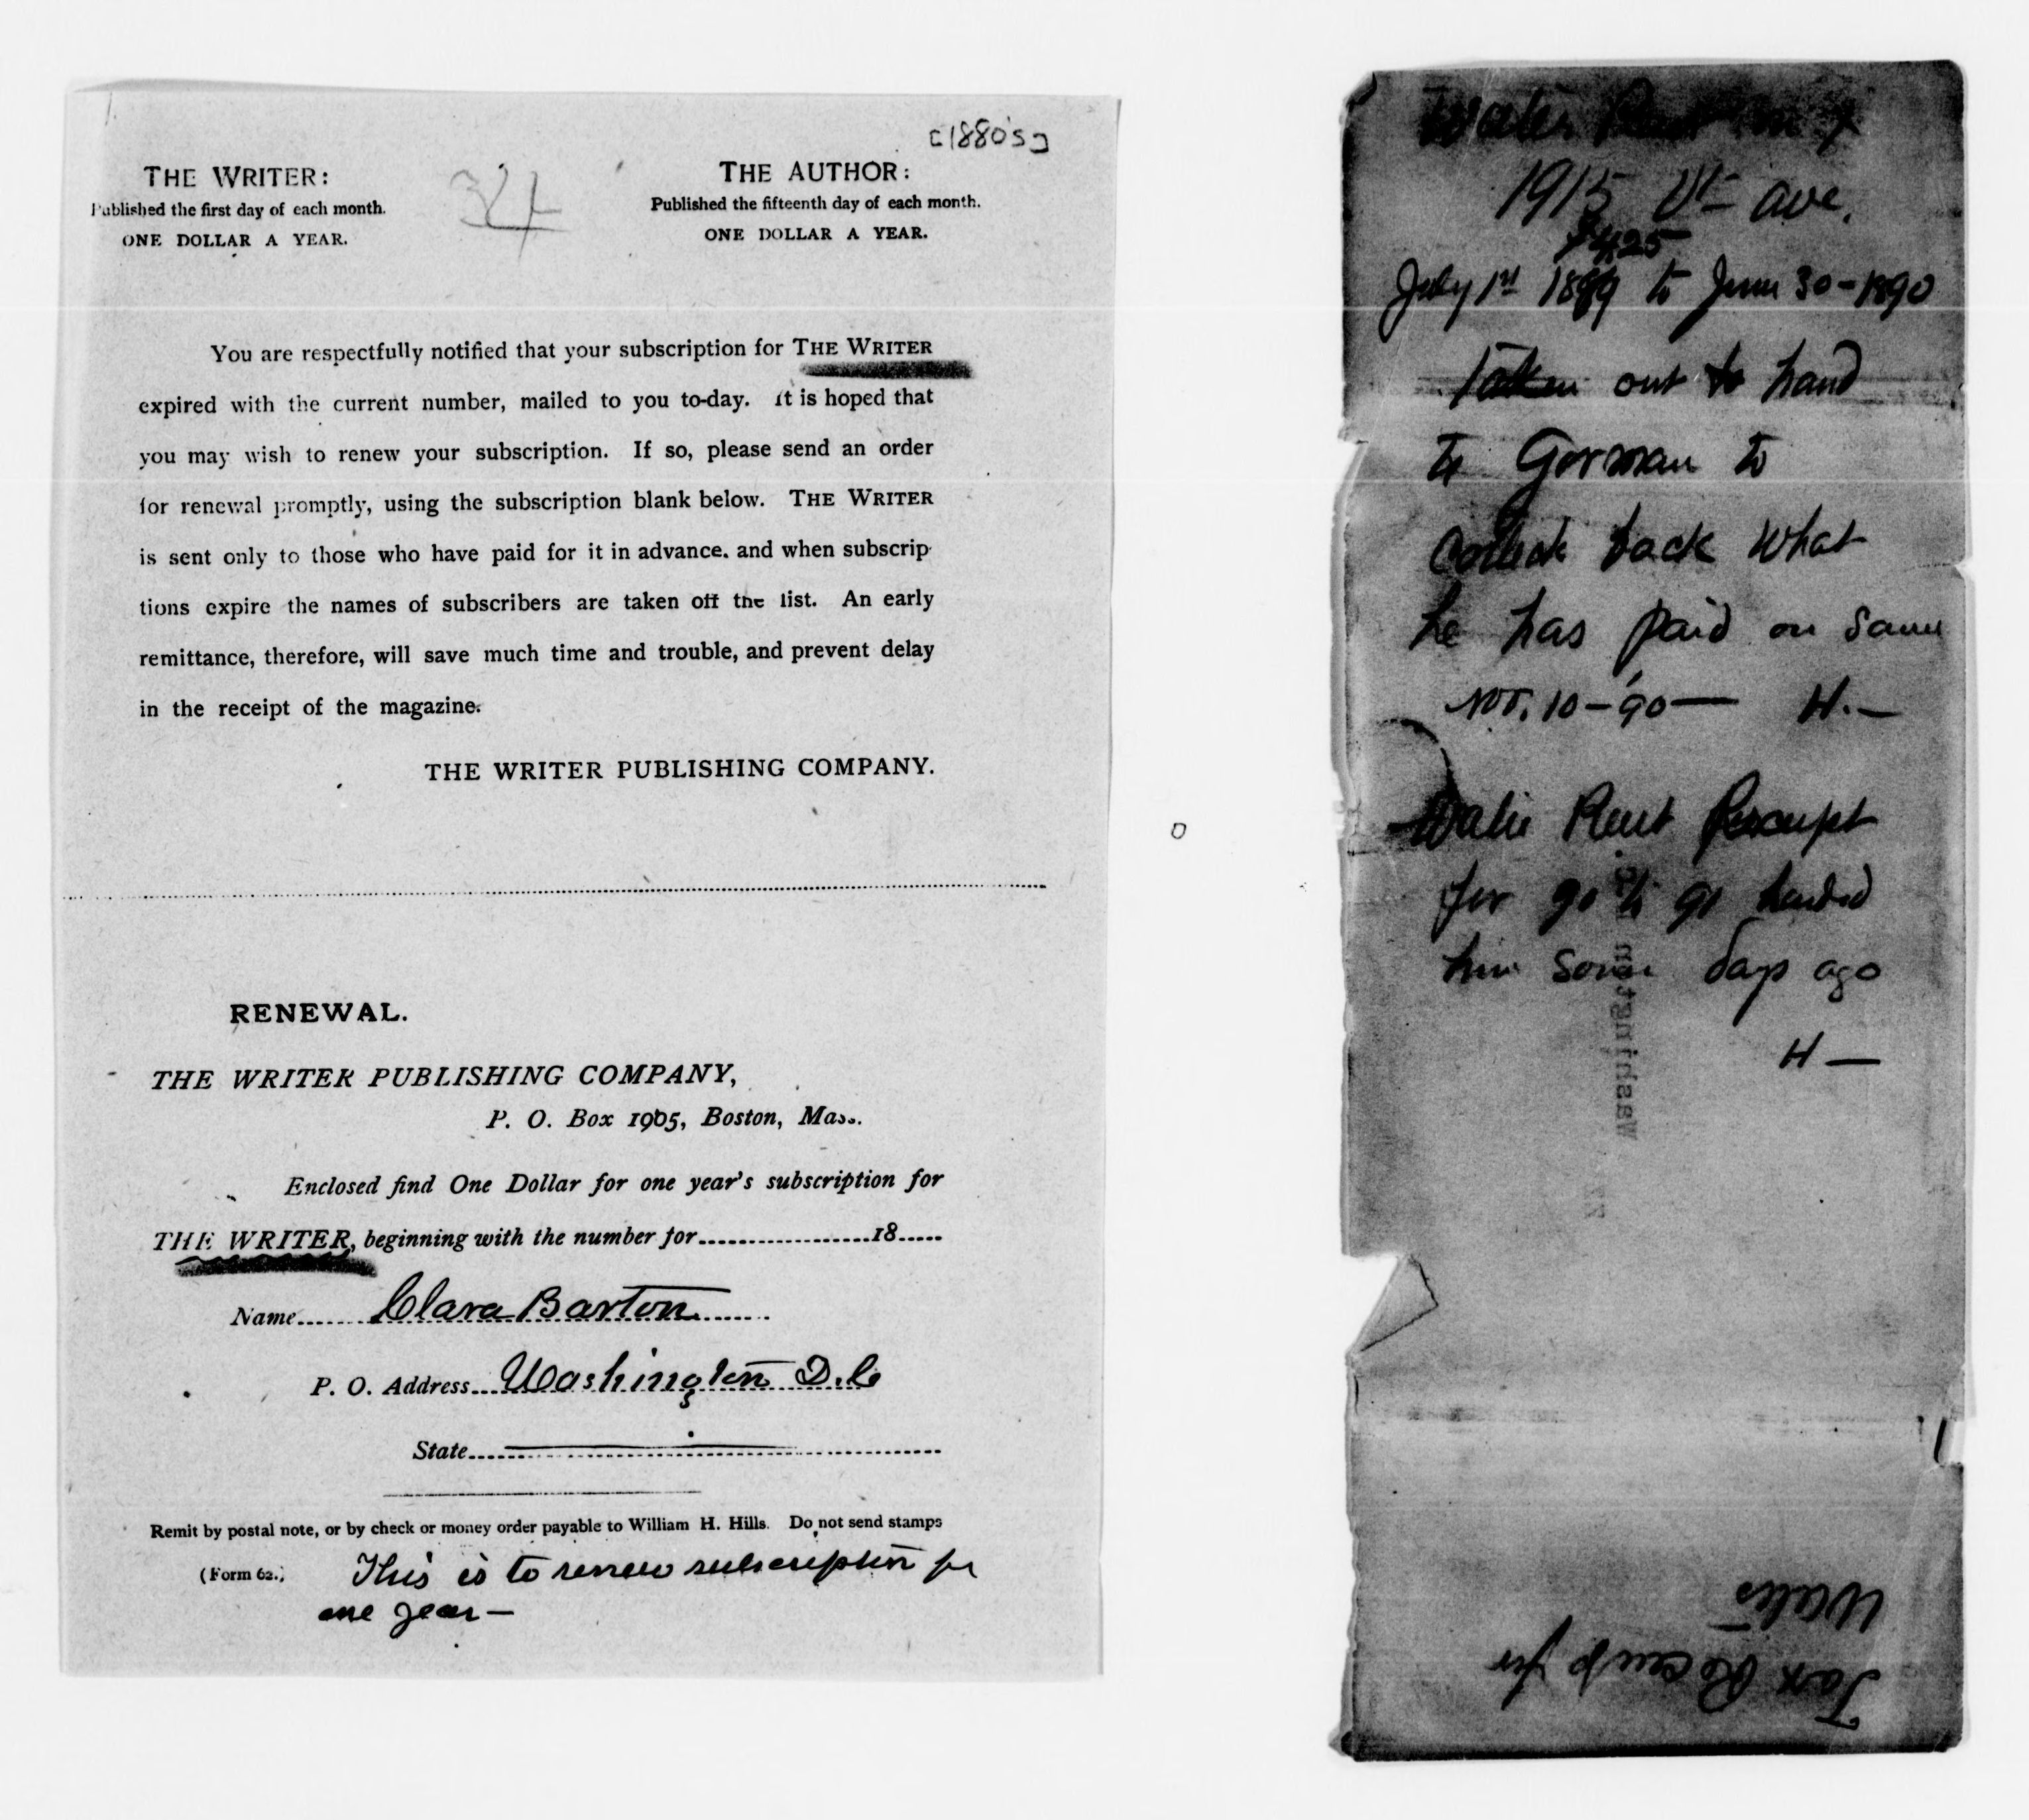 [1880's]
THE WRITER:
Published the first day of each month.
ONE DOLLAR A YEAR.
34
THE AUTHOR:
Published the fifteenth day of each month.
ONE DOLLAR A YEAR.
You are respectfully notified that your subscription for THE WRITER
expired with the current number, mailed to you to-day. It is hoped that
you may wish to renew your subscription. If so, please send an order
for renewal promptly, using the subscription blank below. THE WRITER
is sent only to those who have paid for it in advance. and when subscrip-
tions expire the names of subscribers are taken off the list. An early
remittance, therefore, will save much time and trouble, and prevent delay
in the receipt of the magazine.
THE WRITER PUBLISHING COMPANY.
RENEWAL.
THE WRITER PUBLISHING COMPANY,
P. O. Box 1905, Boston, Mass.
Enclosed find One Dollar for one year's subscription for
THE WRITER, beginning with the number for..................18.....
Name....... Clara Barton
P. O. Address... Washington D.C
State
Remit by postal note, or by check or money order payable to William H. Hills. Do not send stamps
(Form 62.)
This is to renew subscription for
one year—
Water Rent
1915 Vt ave.
$4.25
July 1st 1889 to June 30-1890
Taken out to hand
to Gorman to
Collect back what
he has paid on same
Nov. 10-90— H.—
Water Rent Receipt
for 90 to 91 handed
him some days ago
H—
Washington
Tax Receip for
Water